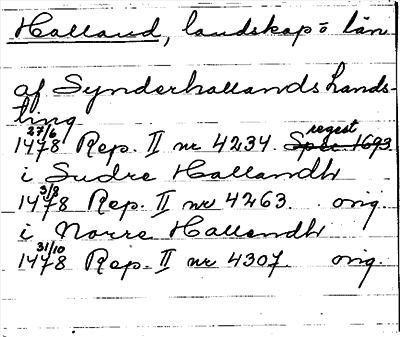 Halland, landskap o län
af Synderhallands hands-
ting
1478 27/6 Rep. II nr 4234. Spec 1693 regest
i Sudre Hallandh
1478 3/8 Rep. II nr 4263. orig.
i Norre Hallandh
1478 31/10 Rep. II nr 4307. orig.